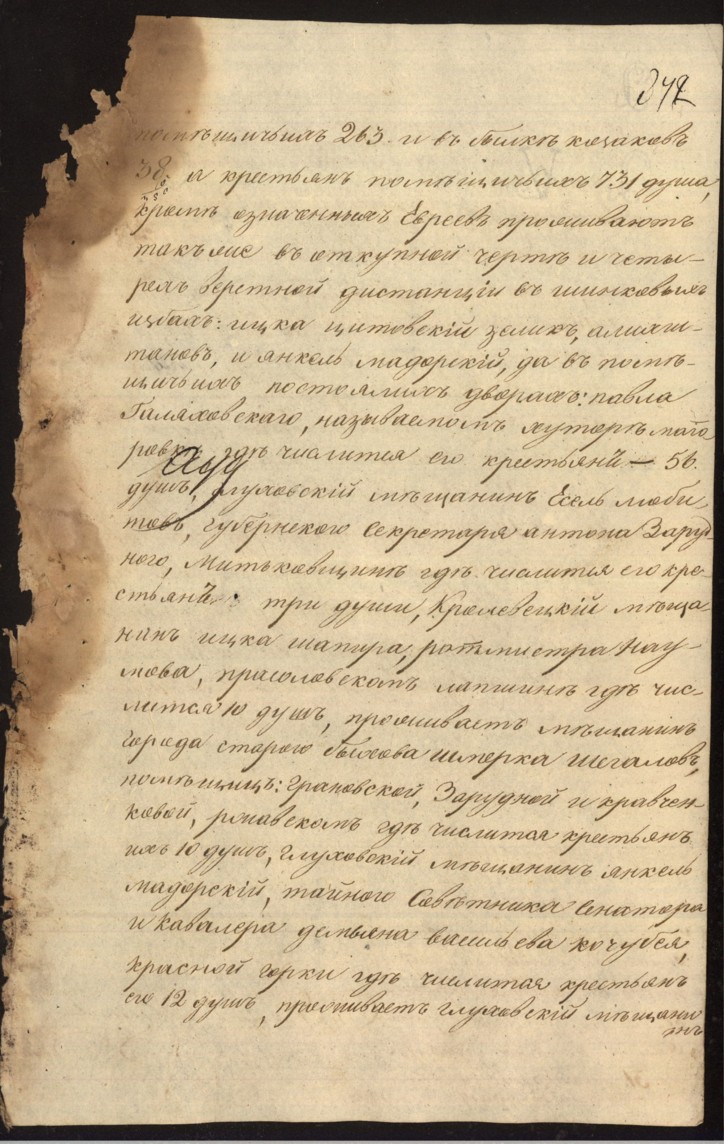 342
помѣщичьихъ 263. и въ билкѣ козаковъ
38 и крестьянъ помѣщичьихъ 731 душа,
кромѣ означенныхъ Евреевъ проживаютъ
такъ же въ откупной чертѣ и четы-
рехъ верстной дистанціи въ шинковыхъ
избахъ: ицка цитовскій зеликъ,
тановъ, и янкель мадорскій, да въ помѣ-
щичьихъ постоялыхъ дворахъ: павла
Галяховскаго, называемомъ хуторѣ маго
ровкѣ гдѣ числится его крестьянъ — 56.
душъ, глуховскій мѣщанинъ Есель люби-
товъ, губернского Секретаря антона Заруд-
ного, Митьковщинѣ гдѣ числится его кре-
стьянъ три души, Кролевецкій мѣща-
нинъ ицка шапира, ротмистра Нау-
мова, прасоловскомъ лапшинѣ гдѣ чис-
лится 10 душъ, проживаетъ мѣщанинъ
города старого быхова шмерка шегаловъ,
помѣщицъ: Грановской, Зарудной и кравчен-
ковой, гдѣ числится крестьянъ
ихъ 10 душъ, глуховскій мѣщанинъ янкель
мадорскій, тайного Совѣтника Сенатора
и кавалера демьяна васильева кочубея,
красной горки гдѣ числится крестьянъ
его 12 душъ, проживаетъ глуховскій мѣщани
нъ